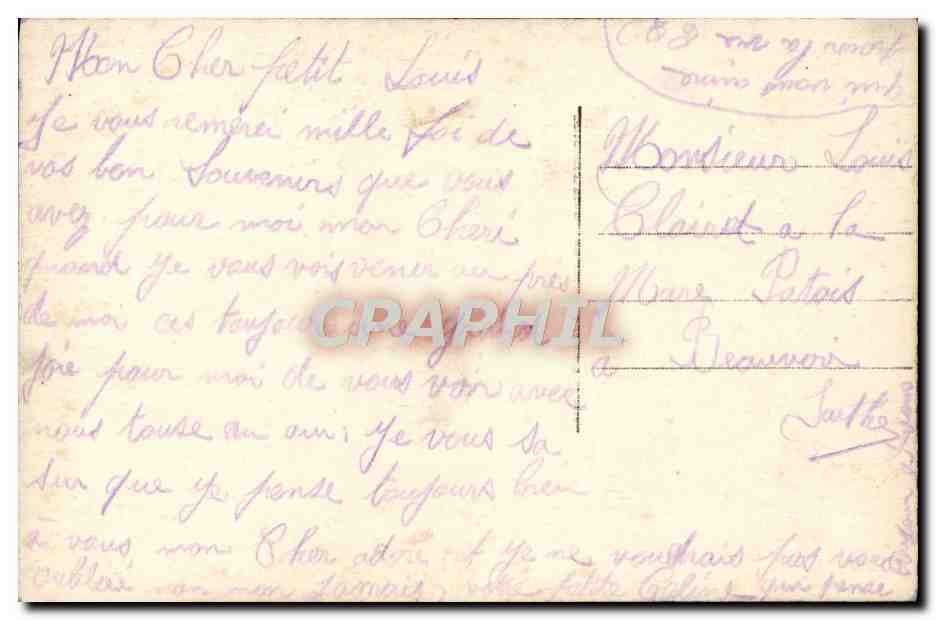 Mon Cher petit Louis
Je vous remerci mille foi de
vos bon Souvenirs que vous
avez pour moi mon Cheri
quand Je vous vois venir au près
de moi ces toujours
joie pour moi de vous voir avec
nous touse Je vous
sur que Je pense toujours bien
a vous mon Cher adoré et Je ne voudrais pas vous
oublier non non Jamais votre petite Céline qui pense
Monsieur Louis
a la
Mare Patois
a Beauvoir
Sarthe
qui vous aime
pour la vie
CPARPHIL